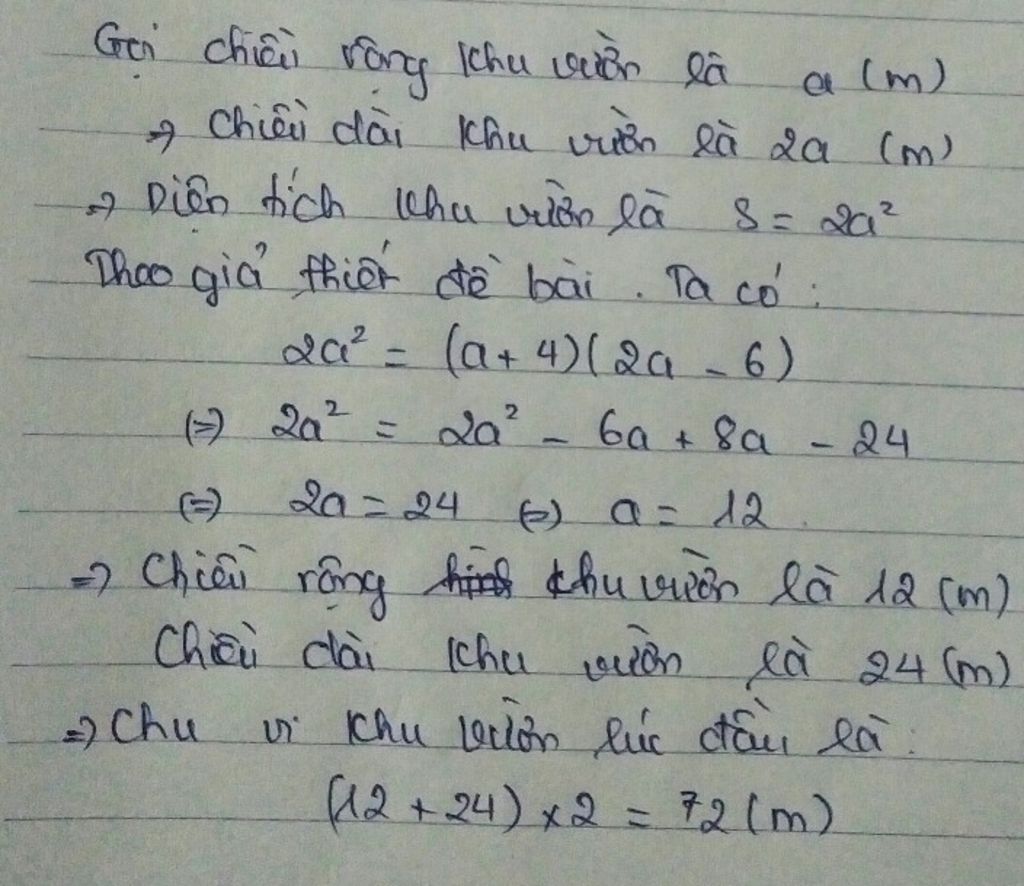 Gọi chiều rộng khu vườn là a (m)
⇒ Chiều dài khu vườn là 2a (m)
⇒ Diện tích khu vườn là S = 2a²
Theo giả thiết đề bài. Ta có:
2a² = (a + 4)(2a - 6)
(=) 2a² = 2a² - 6a + 8a - 24
(=) 2a = 24 (=) a = 12.
⇒ Chiều rộng khu vườn là 12 (m)
Chiều dài khu vườn là 24 (m)
⇒ Chu vi khu vườn lúc đầu là:
(12 + 24) x 2 = 72 (m)